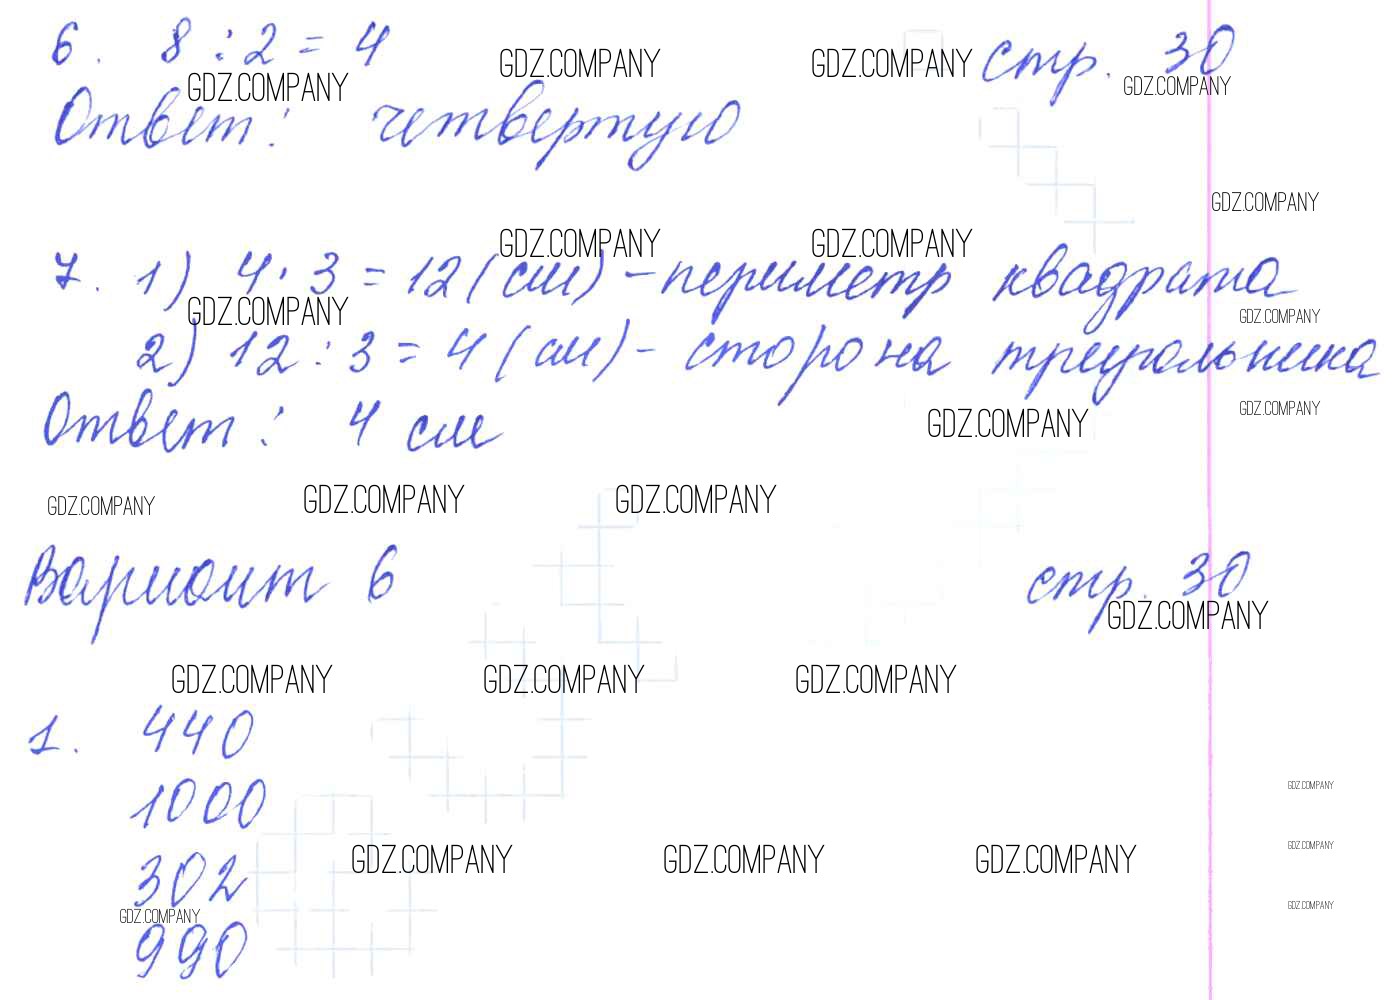 6. 8 : 2 = 4 стр. 30
GDZ.COMPANY GDZ.COMPANY GDZ.COMPANY GDZ.COMPANY
Ответ: четвертую
GDZ.COMPANY
GDZ.COMPANY GDZ.COMPANY
7. 1) 4 · 3 = 12 (см) - периметр квадрата
GDZ.COMPANY GDZ.COMPANY
2) 12 : 3 = 4 (см) - сторона треугольника
Ответ: 4 см
GDZ.COMPANY GDZ.COMPANY
GDZ.COMPANY GDZ.COMPANY GDZ.COMPANY
Вариант 6 стр. 30
GDZ.COMPANY
GDZ.COMPANY GDZ.COMPANY GDZ.COMPANY
1. 440
1000
GDZ.COMPANY
GDZ.COMPANY GDZ.COMPANY GDZ.COMPANY GDZ.COMPANY
302
GDZ.COMPANY GDZ.COMPANY
990